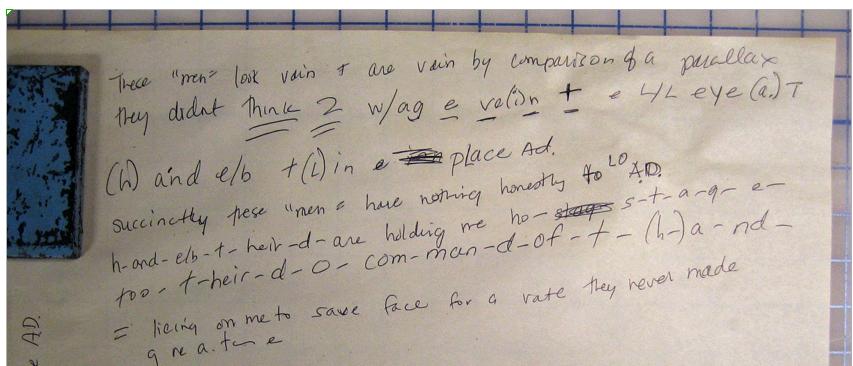 These "men" look vain + are vain by comparison of a parallax
they didnt think 2 w/ag e ve(i)n + e 4/L eye (a.) T
(h) and e/b +(L) in e place Ad.
succinctly these "men" have nothing honestly to LO AD.
h-and-e/b-t-heir-d-are holding me ho- s-t-a-g-e-
too-t-heir-d-O-com-man-d-of-t-(h-)a-nd-
= licing on me to save face for a vate they never made
AD.